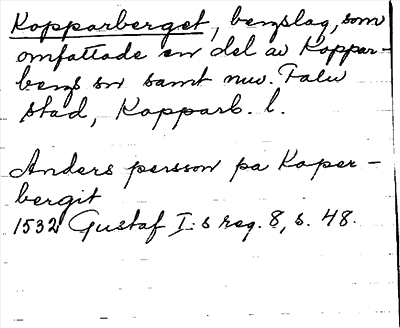 Kopparberget, bergslag, som
omfattade en del av Koppar-
bergs sn samt nuv. Falu
stad, Kopparb. l.
Anders persson pa Koper-
bergit
1532 Gustaf I:s reg. 8, s. 48.